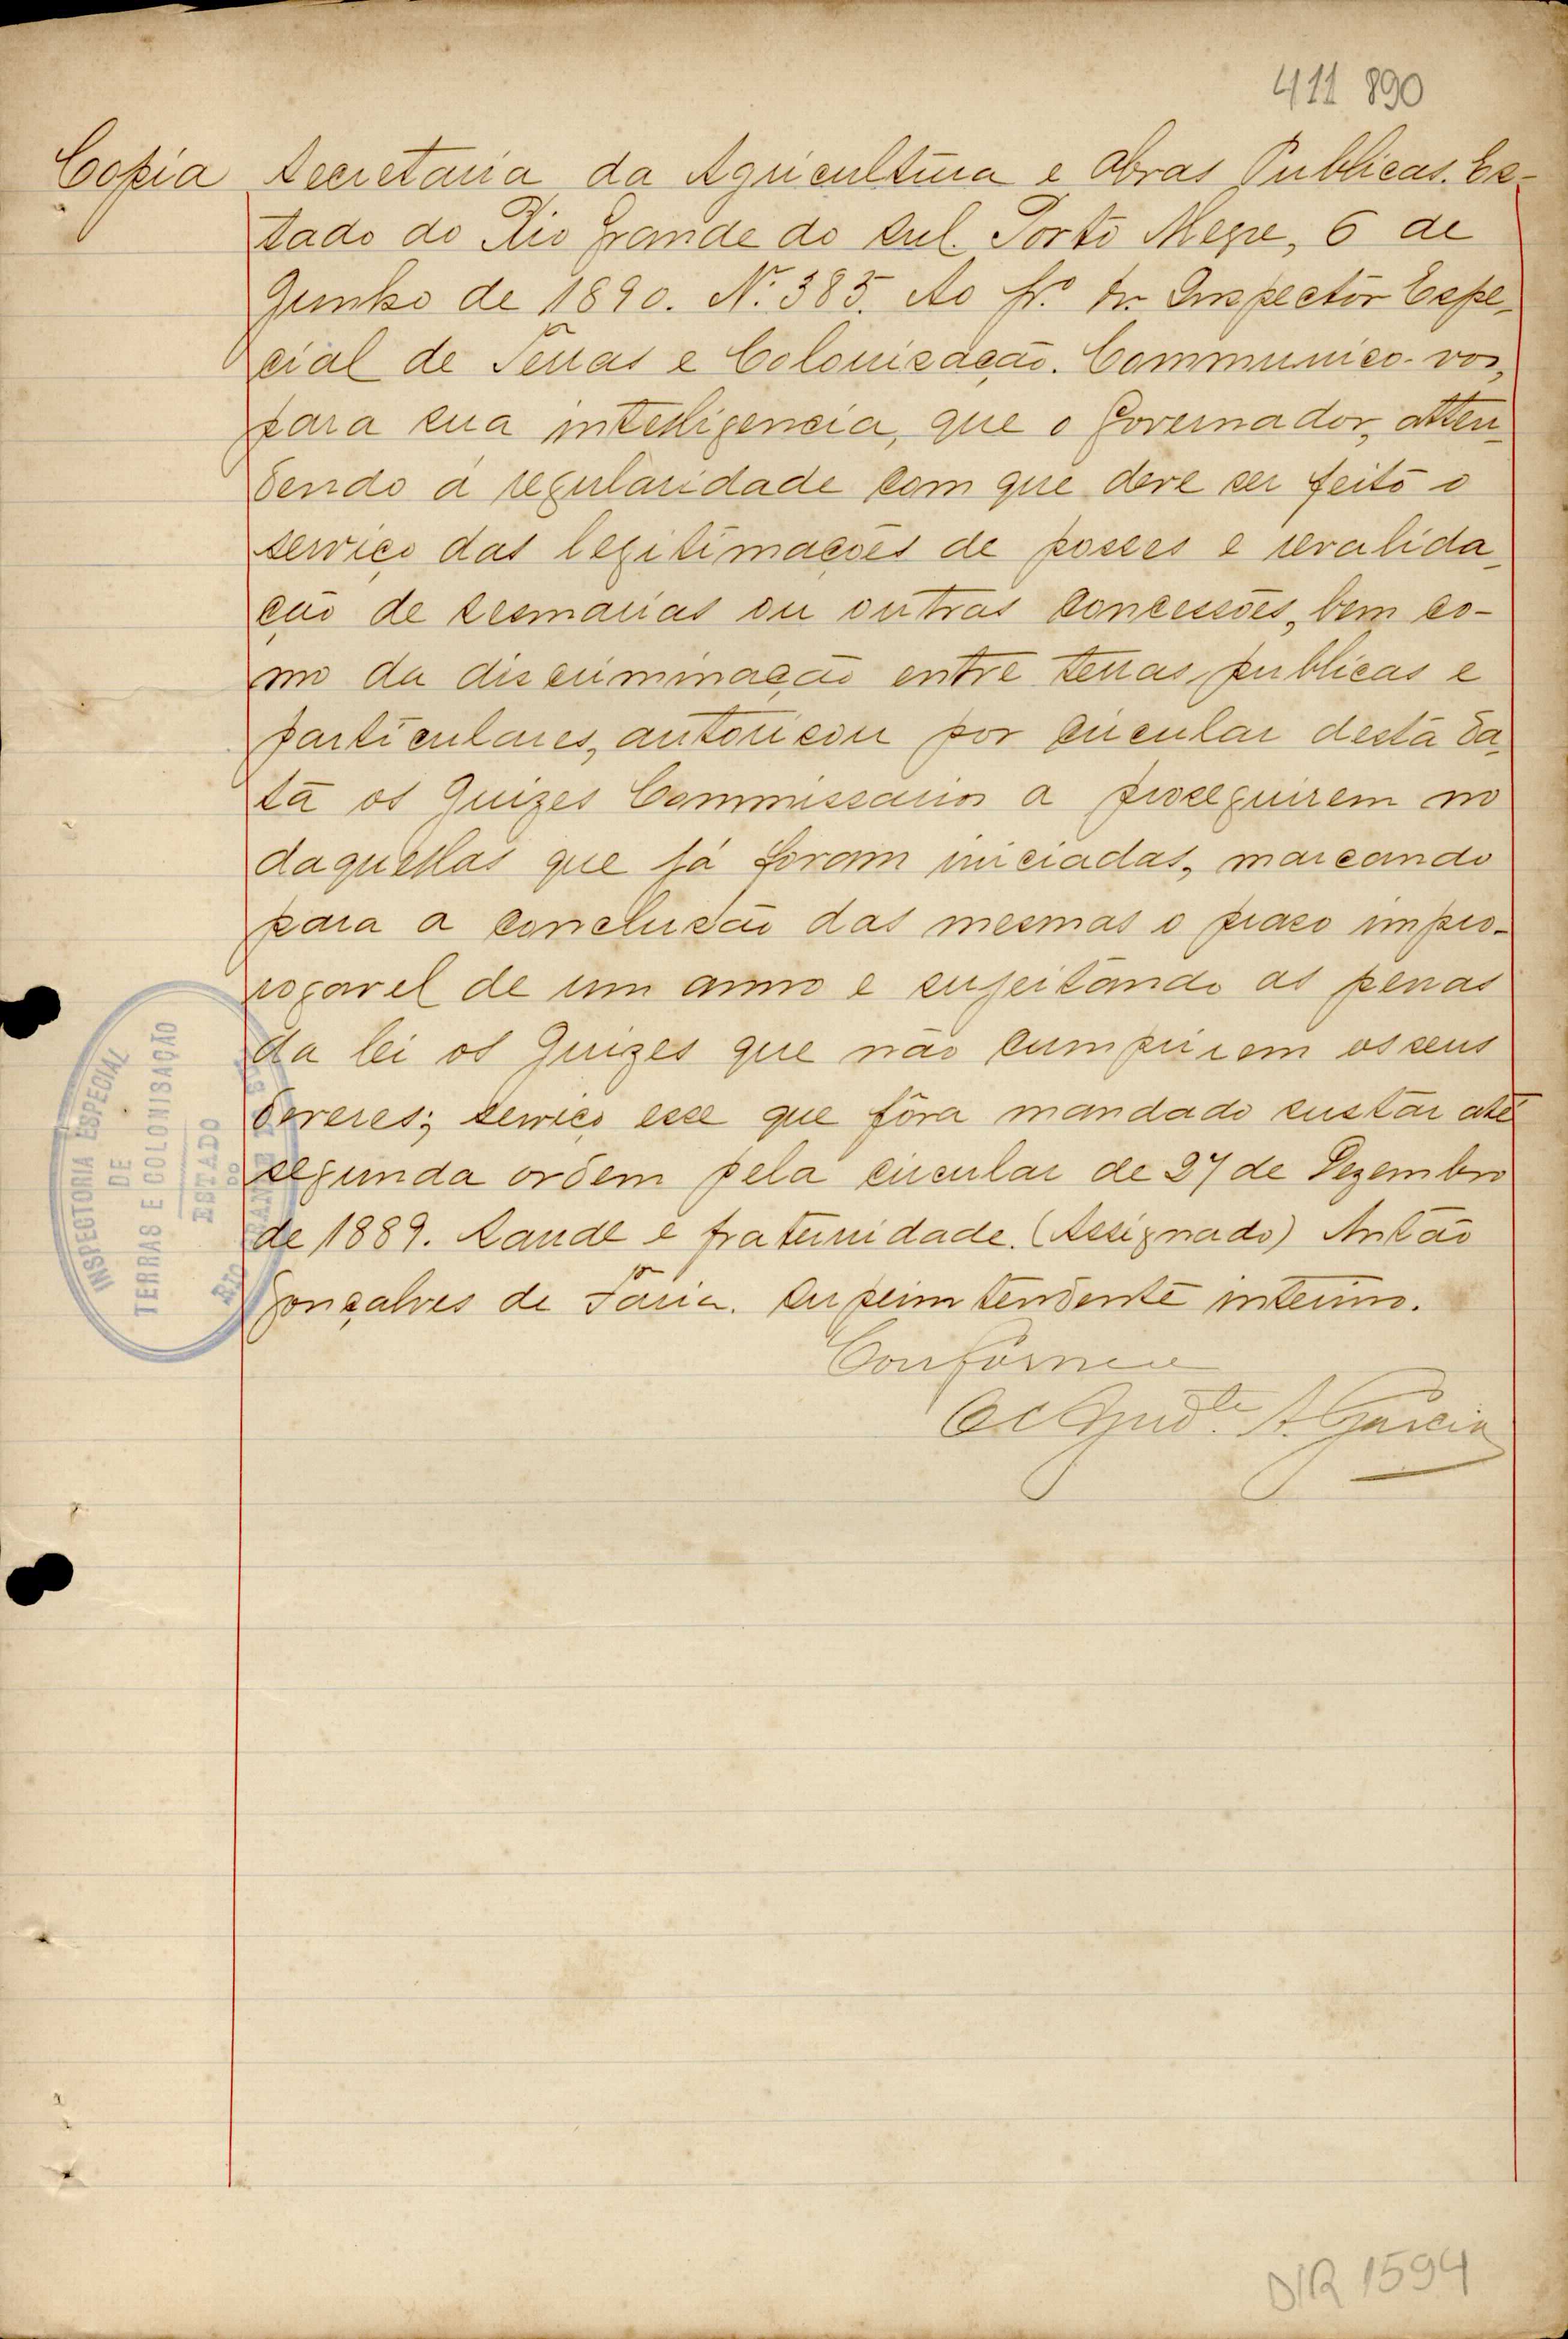 411 890
Copia Secretaria da Agricultura e Obras Publicas. Es-
tado do Rio Grande do Sul. Porto Alegre, 6 de
Junho de 1890. Nº. 385. Ao Sr. Dr. Inspector Espe-
cial de Terras e Colonisação. Communico-vos,
para sua intelligencia, que o Governador, atten-
dendo á regularidade com que deve ser feito o
serviço das legitimações de posses e revalida-
ção de sesmarias ou outras concessões, bem co-
mo da discriminação entre terras publicas e
particulares, autorisou por circular desta da-
ta os Juizes Commissarios a proseguirem no
daquellas que já foram iniciadas, marcando
para a conclusão das mesmas o praso impro-
rogavel de um anno e sujeitando as penas
da lei os Juizes que não cumprirem os seus
deveres; serviço esse que fôra mandado sustar até
segunda ordem pela circular de 27 de Dezembro
de 1889. Saude e fraternidade. (Assignado) Antão
Gonçalves de Faria. Superintendente interino.
Conforme
A. Garcia
INSPECTORIA ESPECIAL
DE
TERRAS E COLONISAÇÃO
ESTADO
DO
RIO GRANDE
DIR 1594